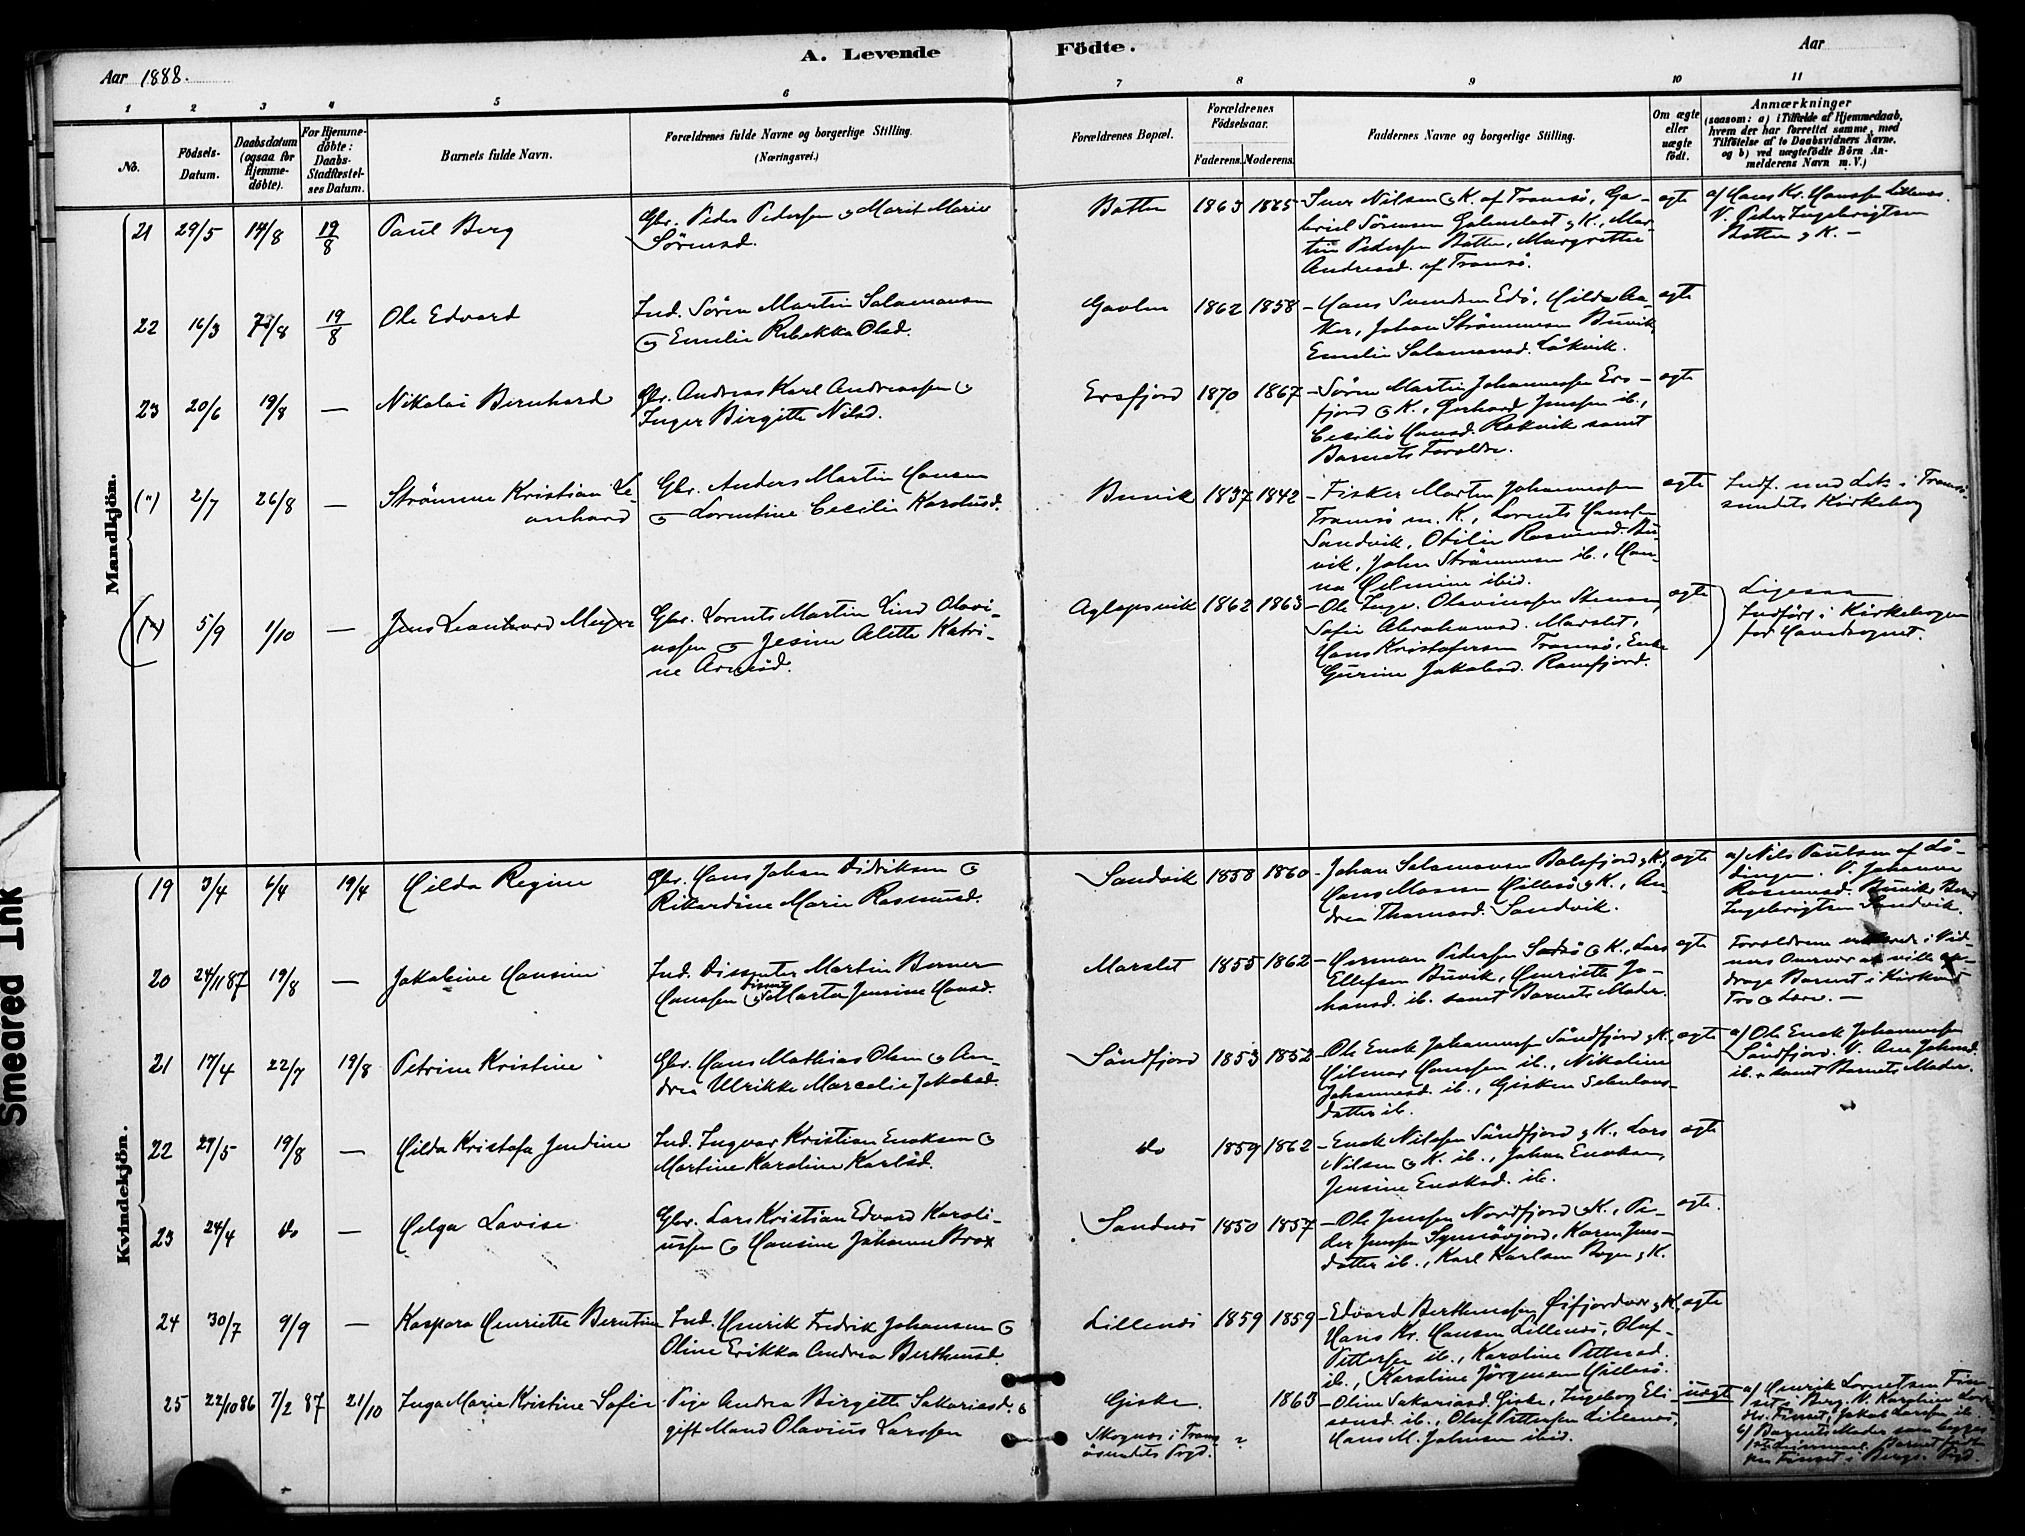 A. Levende Födte.
Aar 1888.
Aar
1 2 3 4 5 6 7 8 9 10 11
No.
Födsels-
Datum.
Daabsdatum
(ogsaa for
Hjemme-
döbte).
For Hjemme-
döbte:
Daabs-
Stadfæstel-
ses Datum.
Barnets fulde Navn.
Forældrenes fulde Navne og borgerlige Stilling.
(Næringsvei.)
Forældrenes Bopæl.
Forældrenes
Födselsaar.
Faderens. Moderens.
Faddernes Navne og borgerlige Stilling.
Om ægte
eller
uægte
født.
Anmærkninger
(saasom: a) i Tilfælde af Hjemmedaab,
hvem der har forrettet samme, med
Tilföielse af to Daabsvidners Navne,
og b) ved uægtefödte Börn An-
melderens Navn m. V.)
Mandkjön.
21 29/5 14/8 19/8 Paul Berg
Gbr. Peder Pedersen & Marit Marie
Sörensd.
Botten 1863 1865
Iver Nilsen & K. af Tromsö, Ga-
briel Sörensen & K., Mar-
tin Pedersen Botten, Margrethe
Andreasd. af Tromsö.
ægte
a) Hans Kr. Hanssen Lillenes.
V. Peder Ingebrigtsen
Botten & K. —
22 16/3 /8 19/8 Ole Edvard
Ind. Sören Martin Salamonsen
& Emilie Rebekka Olsd.
1862 1858
Hans Svendsen Edö, Hilda
Johan Strömmesen Buvik,
Emilie Salamonsd. Låkvik.
ægte
23 20/6 19/8 — Nikolai Bernhard
Gbr. Andreas Karl Andreassen &
Inger Birgitte Nilsd.
Ersfjord 1870 1867
Sören Martin Johannessen Ers-
fjord & K., Gerhard Jenssen ib.,
Cecilie Hansd. Rekvik samt
Barnets Forældre.
ægte
(") 2/7 26/8 — Strömme Kristian Le-
onhard
Gbr. Anders Martin Hansen
& Lorentine Cecilie Karolusd.
Buvik 1837 1842
Fisker Morten Johannessen
Tromsö m. K., Lorents Hanssen
Sandvik, Otilie Rasmusd. Bu-
vik, Johan Strömmesen ib., Han-
na ibid.
ægte
Indf. med i Tromsö-
sundets Kirkebog
5/9 1/10 — Jens Leonhard Meyer
Gbr. Lorents Martin Lind Olavi-
ussen & Jesine Alette Katri-
ne
Aglapsvik 1862 1863
Ole Ingv. Olaviussen
Sofie Abrahamsd. Marslet,
Hans Kristofersen Tromsö, Enke
Gurine Jakobsd. Ramfjord.
ægte
Ligesaa
Indfört i Kirkebogen
for Hovedsognet.
Kvindekjön.
19 3/4 6/4 19/4 Hilda Regine
Gbr. Hans Johan Didriksen &
Rikardine Marie Rasmusd.
Sandvik 1858 1860
Johan Salamonsen Balsfjord & K.,
Hans Monsen Hillesö & K., An-
drea Thomasd. Sandvik.
ægte
a) Nils Paulsen af Lö-
dingen. V. Johanna
Rasmusd. Buvik,
Ingebrigtsen Sandvik.
20 24/11 87 19/8 — Jakobine Hansine
Ind. Dissenter Martin Berner
Hanssen & Dissent. Marta Jensine Hansd.
Marslet 1855 1862
Herman Pedersen & K., Lars
Ellefsen Buvik, Henriette Jo-
hansd. ib. samt Barnets Moder.
ægte
Forældrene erklærede i Vid-
ners Overvær at ville op-
drage Barnet i Kirkens
Tro & Lære. —
21 17/4 22/7 19/8 Petrine Kristine
Gbr. Hans Mathias Olsen & An-
drea Ulrikke Marcelie Jakobsd.
Såndfjord 1853 1852
Ole Enok Johannessen Såndfjord & K.,
Hilmar Hanssen ib., Nikoline
Johannesd. ib., Gisken Sebulons-
datter ib.
ægte
a) Ole Enok Johannessen
Såndfjord. V. Ane Johansd.
ib. samt Barnets Moder.
22 29/5 19/8 — Hilda Kristofa Jendine
Ind. Ingvar Kristian Enoksen &
Martine Karoline Karlsd.
do 1859 1862
Enok Nilssen Såndfjord & K., Lars
Nilsen & K. ib., Johan Enoksen,
Jensine Enoksd. ib.
ægte
23 24/4 do — Helga Lovise
Gbr. Lars Kristian Edvard Karoli-
ussen & Hansine Johanna Brox
Sandnes 1850 1857
Ole Jenssen Nordfjord & K., Pe-
der Jenssen Karen Jens-
datter ib., Karl Karlsen Bogen & K.
ægte.
24 30/7 9/9 — Kaspara Henriette Berntine
Ind. Henrik Fredrik Johansen &
Oline Erikka Andrea Bertheusd.
Lillenes 1859 1859
Edvard Bertheussen Öifjordvær & K.,
Hans Kr. Hansen Lillenes, Oluf
Pettersen ib., Karoline Pettersd.
ib., Karoline Jörgensen Hillesö.
ægte
25 22/10 86 7/2 87 21/10 Inga Marie Kristine Sofie
Pige Andrea Birgitte Sakariasd. &
gift Mand Olavius Larssen
Giske.
Skognes i Troms-
ösundets Pgd.
? 1863
Oline Sakariasd. Giske, Ingeborg Eli-
asd. ib., Oluf Pettersen Lillenes,
Hans M. Johnsen ibid.
uægte
a) Henrik Lorentsen Fin-
set i Berg. V. Karoline
Finset, Jakob Larssen ib.
b) Barnets Moder som
Barnet födt
paa Finset i Bergs Pgd.
Smeared Ink